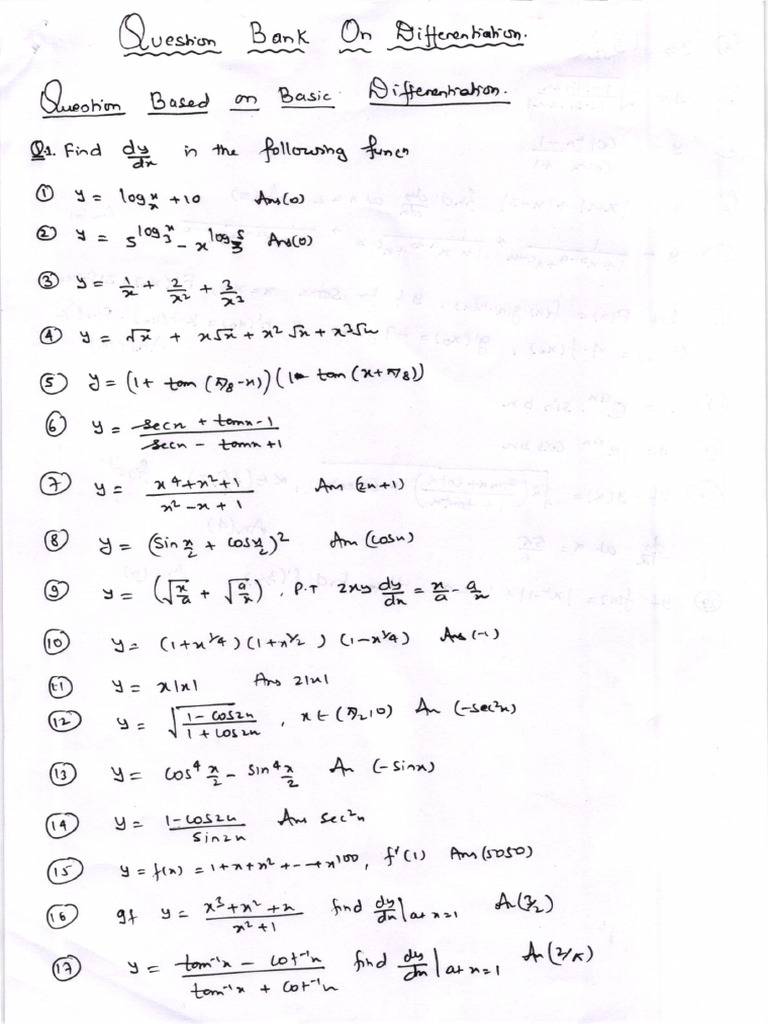 Question Bank On Differentiation.
Question Based on Basic Differentiation.
Q1. Find dy/dx in the following func
① y = log_x x + 10 Ans(0)
② y = 5^(log_3 x) - x^(log_3 5) Ans(0)
③ y = 1/x + 2/x² + 3/x²
④ y = √x + x√x + x²√x + x³√x
⑤ y = (1 + tan(π/8 - x))(1 - tan(x + π/8))
⑥ y = (secx + tanx - 1)/(secx - tanx + 1)
⑦ y = (x⁴ + x² + 1)/(x² - x + 1) An (2x+1)
⑧ y = (sin x/2 + cos x/2)² An (cosx)
⑨ y = (√(x/a) + √(a/x)), P.T 2xy dy/dx = x/a - a/x
⑩ y = (1 + x^1/4)(1 + x^1/2)(1 - x^1/4) An (-1)
⑪ y = x|x| An 2|x|
⑫ y = √((1 - cos2x)/(1 + cos2x)), x ∈ (π/2, 0) An (-sec²x)
⑬ y = cos⁴ x/2 - sin⁴ x/2 An (-sinx)
⑭ y = (1 - cos2x)/sin2x An sec²x
⑮ y = f(x) = 1 + x + x² + -- + x^100, f'(1) An (5050)
⑯ If y = (x³ + x² + x)/(x² + 1) find dy/dx| at x=1 An (3/2)
⑰ y = (tan⁻¹x - cot⁻¹x)/(tan⁻¹x + cot⁻¹x) find dy/dx| at x=1 An (2/π)